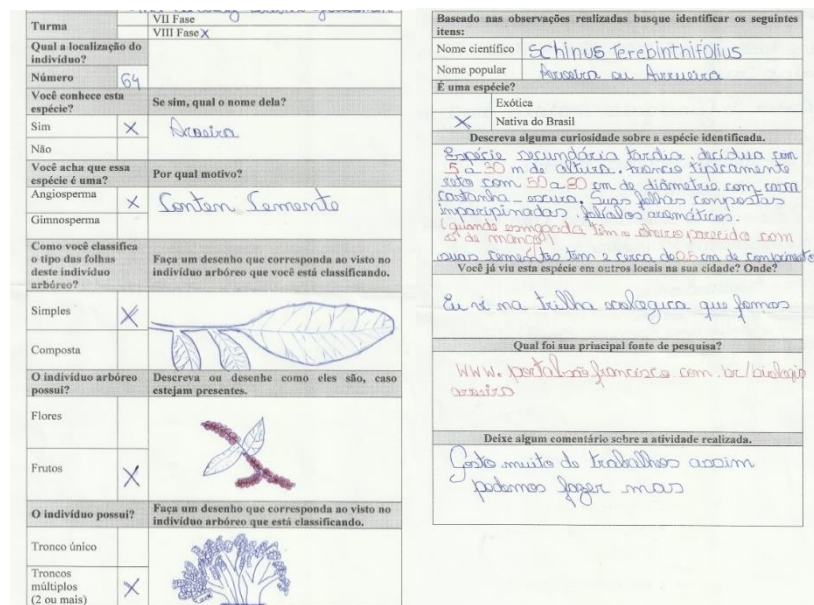 Turma
VII Fase
VIII Fase X
Qual a localização do indivíduo?
Número
64
Você conhece esta espécie?
Se sim, qual o nome dela?
Sim
X
Aroeira
Não
Você acha que essa espécie é uma?
Por qual motivo?
Angiosperma
X
Contem Semente
Gimnosperma
Como você classifica o tipo das folhas deste indivíduo arbóreo?
Faça um desenho que corresponda ao visto no indivíduo arbóreo que você está classificando.
Simples
X
Composta
O indivíduo arbóreo possui?
Descreva ou desenhe como eles são, caso estejam presentes.
Flores
Frutos
X
O indivíduo possui?
Faça um desenho que corresponda ao visto no indivíduo arbóreo que está classificando.
Tronco único
Troncos múltiplos (2 ou mais)
X
Baseado nas observações realizadas busque identificar os seguintes itens:
Nome científico
SChinus Terebinthifolius
Nome popular
Aroeira ou Arrueira
É uma espécie?
Exótica
X
Nativa do Brasil
Descreva alguma curiosidade sobre a espécie identificada.
Espécie secundária tardia, decídua com
5 a 30 m de altura, tronco tipicamente
reto com 50 a 80 cm de diâmetrio com casca
castanha-escura. Suas folhas compostas
imparipinadas, folíolos aromáticos.
(quando esmagada têm o cheiro parecido com
de manga)
suas sementes tem e cerca de 0,5 cm de comprimento
Você já viu esta espécie em outros locais na sua cidade? Onde?
Eu vi na trilha ecologica que fomos
Qual foi sua principal fonte de pesquisa?
WWW. portalsãofrancisco.com.br/biologia
aroeira
Deixe algum comentário sobre a atividade realizada.
Gosto muito de trabalhos assim
podemos fazer mas